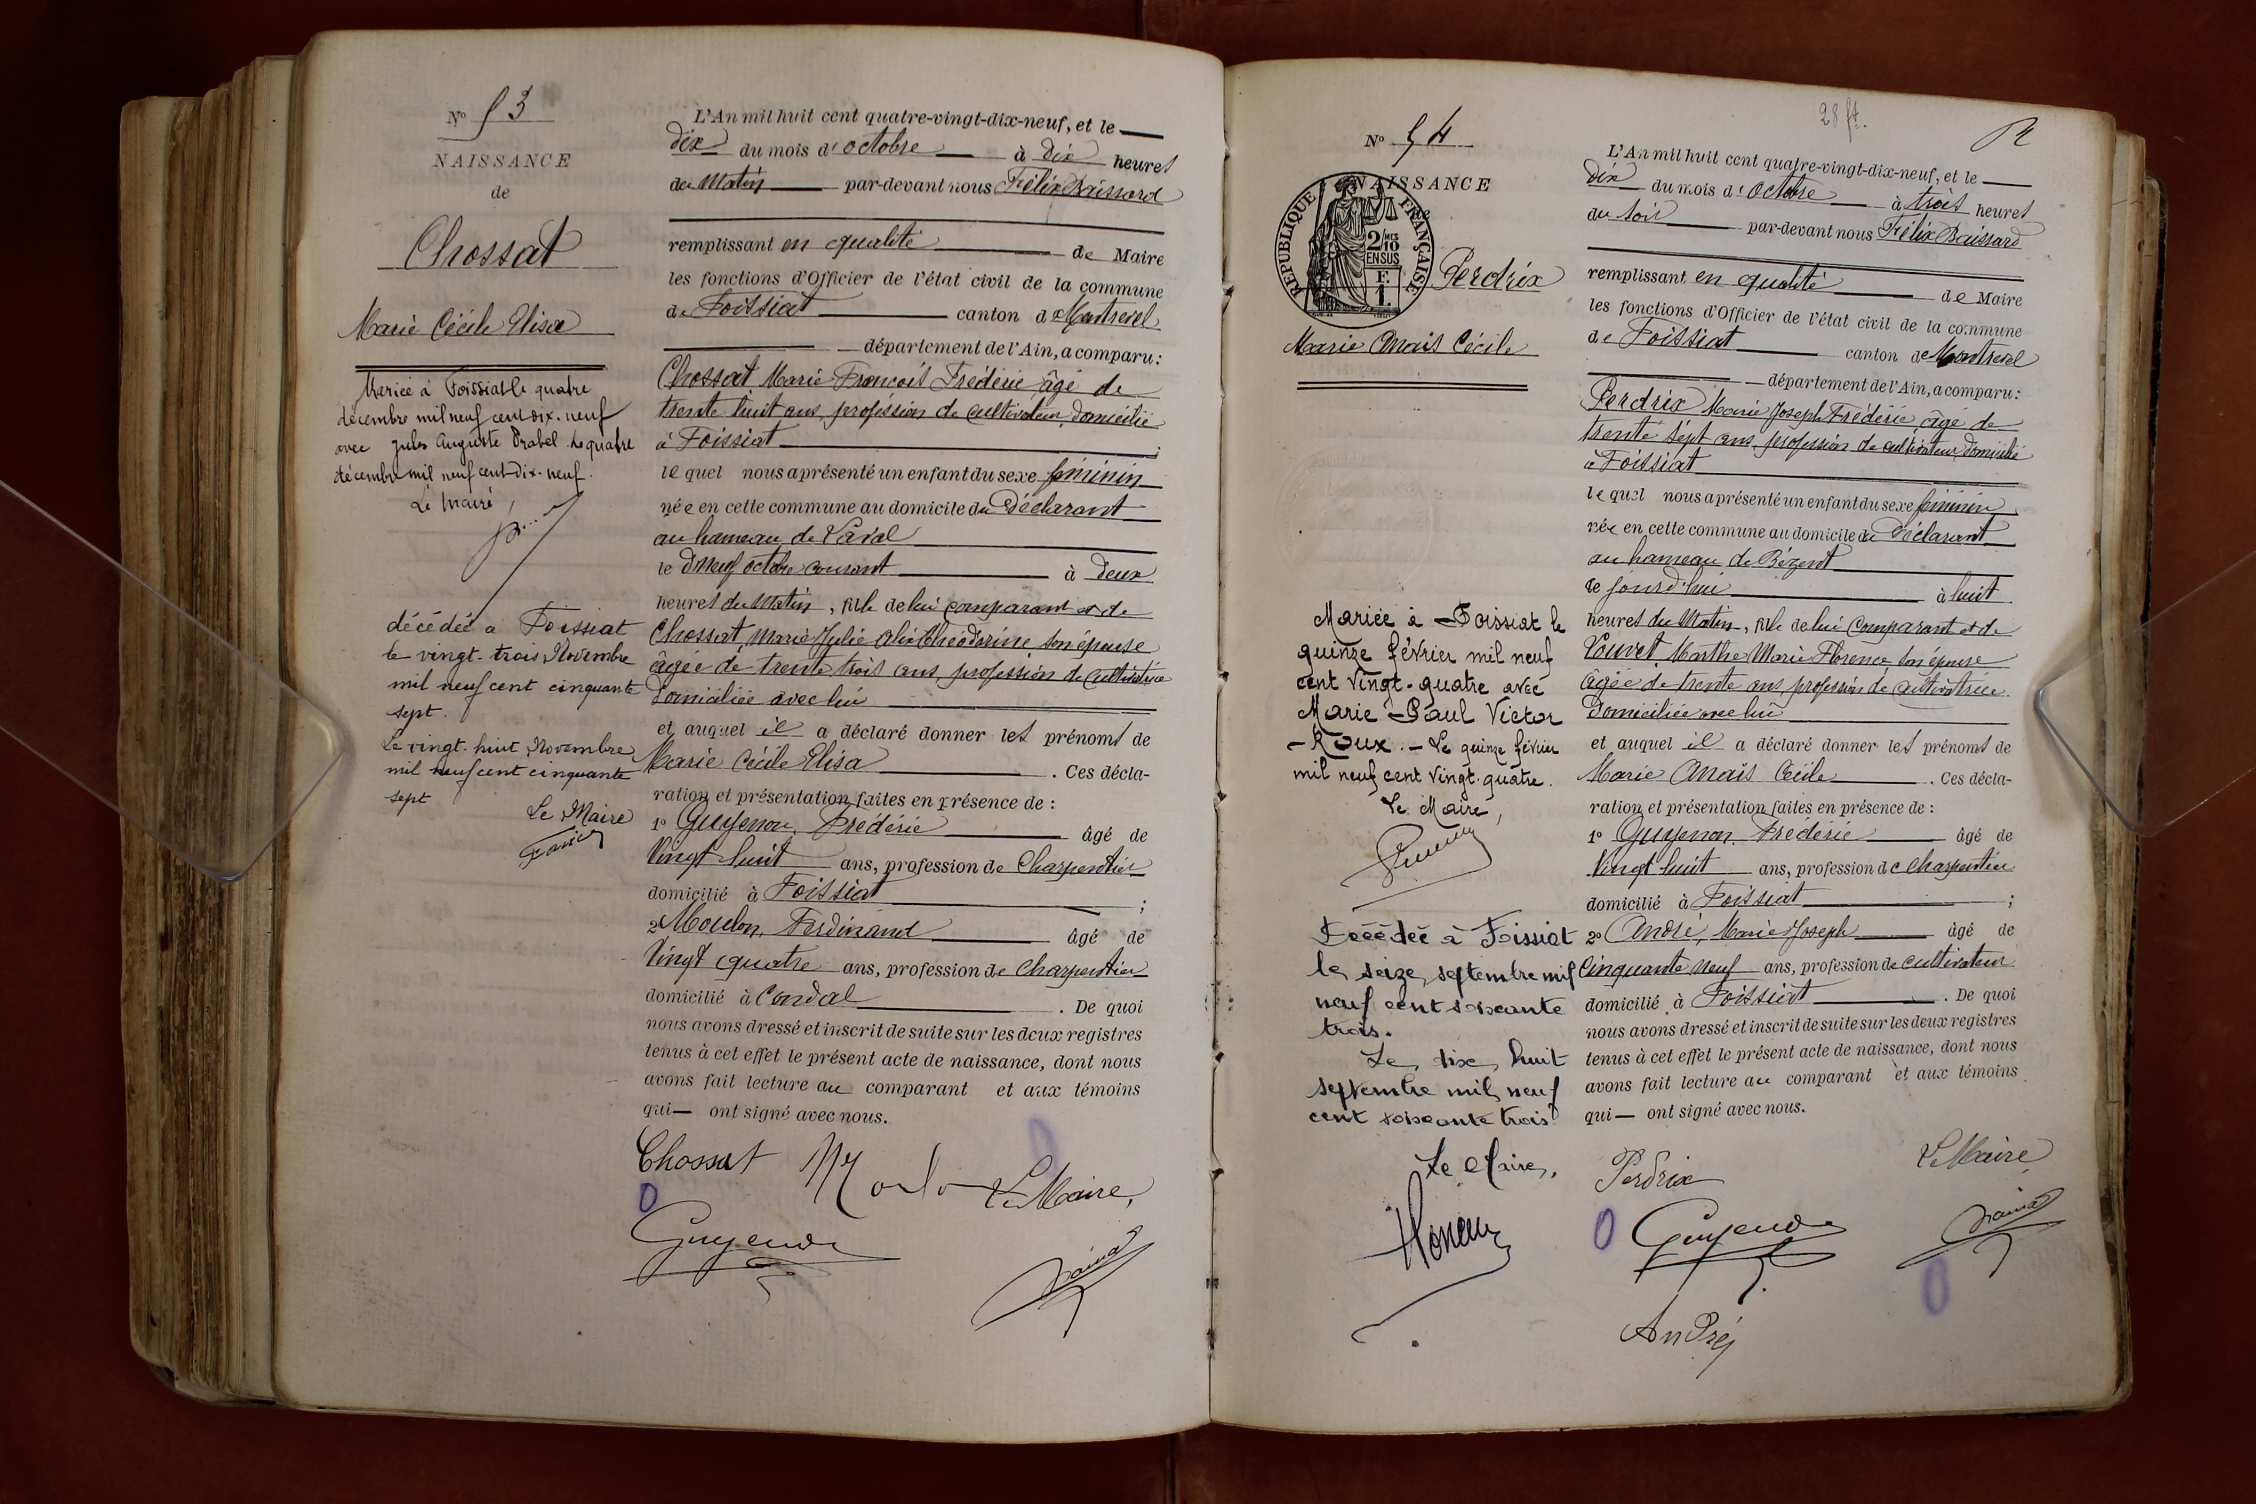 N° 53
NAISSANCE
de
Chossat
Marie Cécile Elisa
Mariée à Foissiat le quatre
décembre mil neuf cent dix-neuf
avec Jules Auguste Prabel. Le quatre
décembre mil neuf cent dix-neuf.
Le maire,
décédée à Foissiat
le vingt-trois Novembre
mil neuf cent cinquante
sept.
Le vingt-huit Novembre
mil neuf cent cinquante
sept
Le Maire
L'An mil huit cent quatre-vingt-dix-neuf, et le
dix du mois d'octobre à dix heures
du Matin par-devant nous Félix Baissard
remplissant en qualité de Maire
les fonctions d'Officier de l'état civil de la commune
de Foissiat canton de Montrevel
département de l'Ain, a comparu :
Chossat Marie François Frédéric âgé de
trente huit ans, profession de cultivateur, domicilié
à Foissiat ;
lequel nous a présenté un enfant du sexe féminin
née en cette commune au domicile du Déclarant
au hameau de Laval
le neuf octobre courant à deux
heures du Matin, fille de lui comparant et de
Chossat, Marie Julie Théodorine son épouse
âgée de trente trois ans, profession de cultivatrice
domiciliée avec lui
et auquel il a déclaré donner les prénoms de
Marie Cécile Elisa . Ces décla-
ration et présentation faites en présence de :
1° Guyenon, Frédéric âgé de
Vingt huit ans, profession de Charpentier
domicilié à Foissiat ;
2° Moulon, Ferdinand âgé de
Vingt quatre ans, profession de Charpentier
domicilié à Condal . De quoi
nous avons dressé et inscrit de suite sur les deux registres
tenus à cet effet le présent acte de naissance, dont nous
avons fait lecture au comparant et aux témoins
qui ont signé avec nous.
Chossat Moulon Le Maire,
Guyenon
28 ft.
N° 54
NAISSANCE
REPUBLIQUE FRANÇAISE
2/10 MES
EN SUS
F.
1.
Perdrix
Marie Anaïs Cécile
Mariée à Foissiat le
quinze février mil neuf
cent vingt-quatre avec
Marie Paul Victor
Roux. - Le quinze février
mil neuf cent vingt-quatre.
Le Maire,
Décédée à Foissiat
le seize septembre mil
neuf cent soixante
trois.
Le dix huit
septembre mil neuf
cent soixante trois
Le Maire,
L'An mil huit cent quatre-vingt-dix-neuf, et le
dix du mois d'octobre à trois heures
du soir par-devant nous Félix Baissard
remplissant en qualité de Maire
les fonctions d'Officier de l'état civil de la commune
de Foissiat canton de Montrevel
département de l'Ain, a comparu :
Perdrix Marie Joseph Frédéric âgé de
trente sept ans, profession de cultivateur, domicilié
à Foissiat
lequel nous a présenté un enfant du sexe féminin
née en cette commune au domicile du Déclarant
au hameau de Bézent
ce jourd'hui à huit
heures du Matin, fille de lui comparant et de
Louvet, Marthe Marie Florence son épouse
âgée de trente ans, profession de cultivatrice
domiciliée avec lui
et auquel il a déclaré donner les prénoms de
Marie Anaïs Cécile . Ces décla-
ration et présentation faites en présence de :
1° Guyenon, Frédéric âgé de
Vingt huit ans, profession de charpentier
domicilié à Foissiat ;
2° André, Marie Joseph âgé de
Cinquante neuf ans, profession de cultivateur
domicilié à Foissiat . De quoi
nous avons dressé et inscrit de suite sur les deux registres
tenus à cet effet le présent acte de naissance, dont nous
avons fait lecture au comparant et aux témoins
qui ont signé avec nous.
Perdrix Le Maire
Guyenon
André